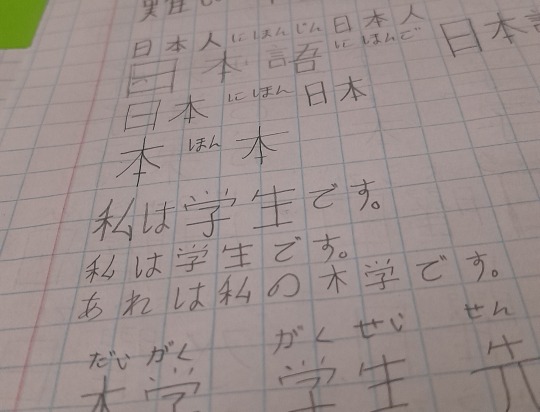 日本人 にほんじん 日本人
日本語 にほんご 日本語
日本 にほん 日本
本 ほん 本
私は学生です。
私は学生です。
あれは私の木学です。
だいがく がくせい せん
大学 学生